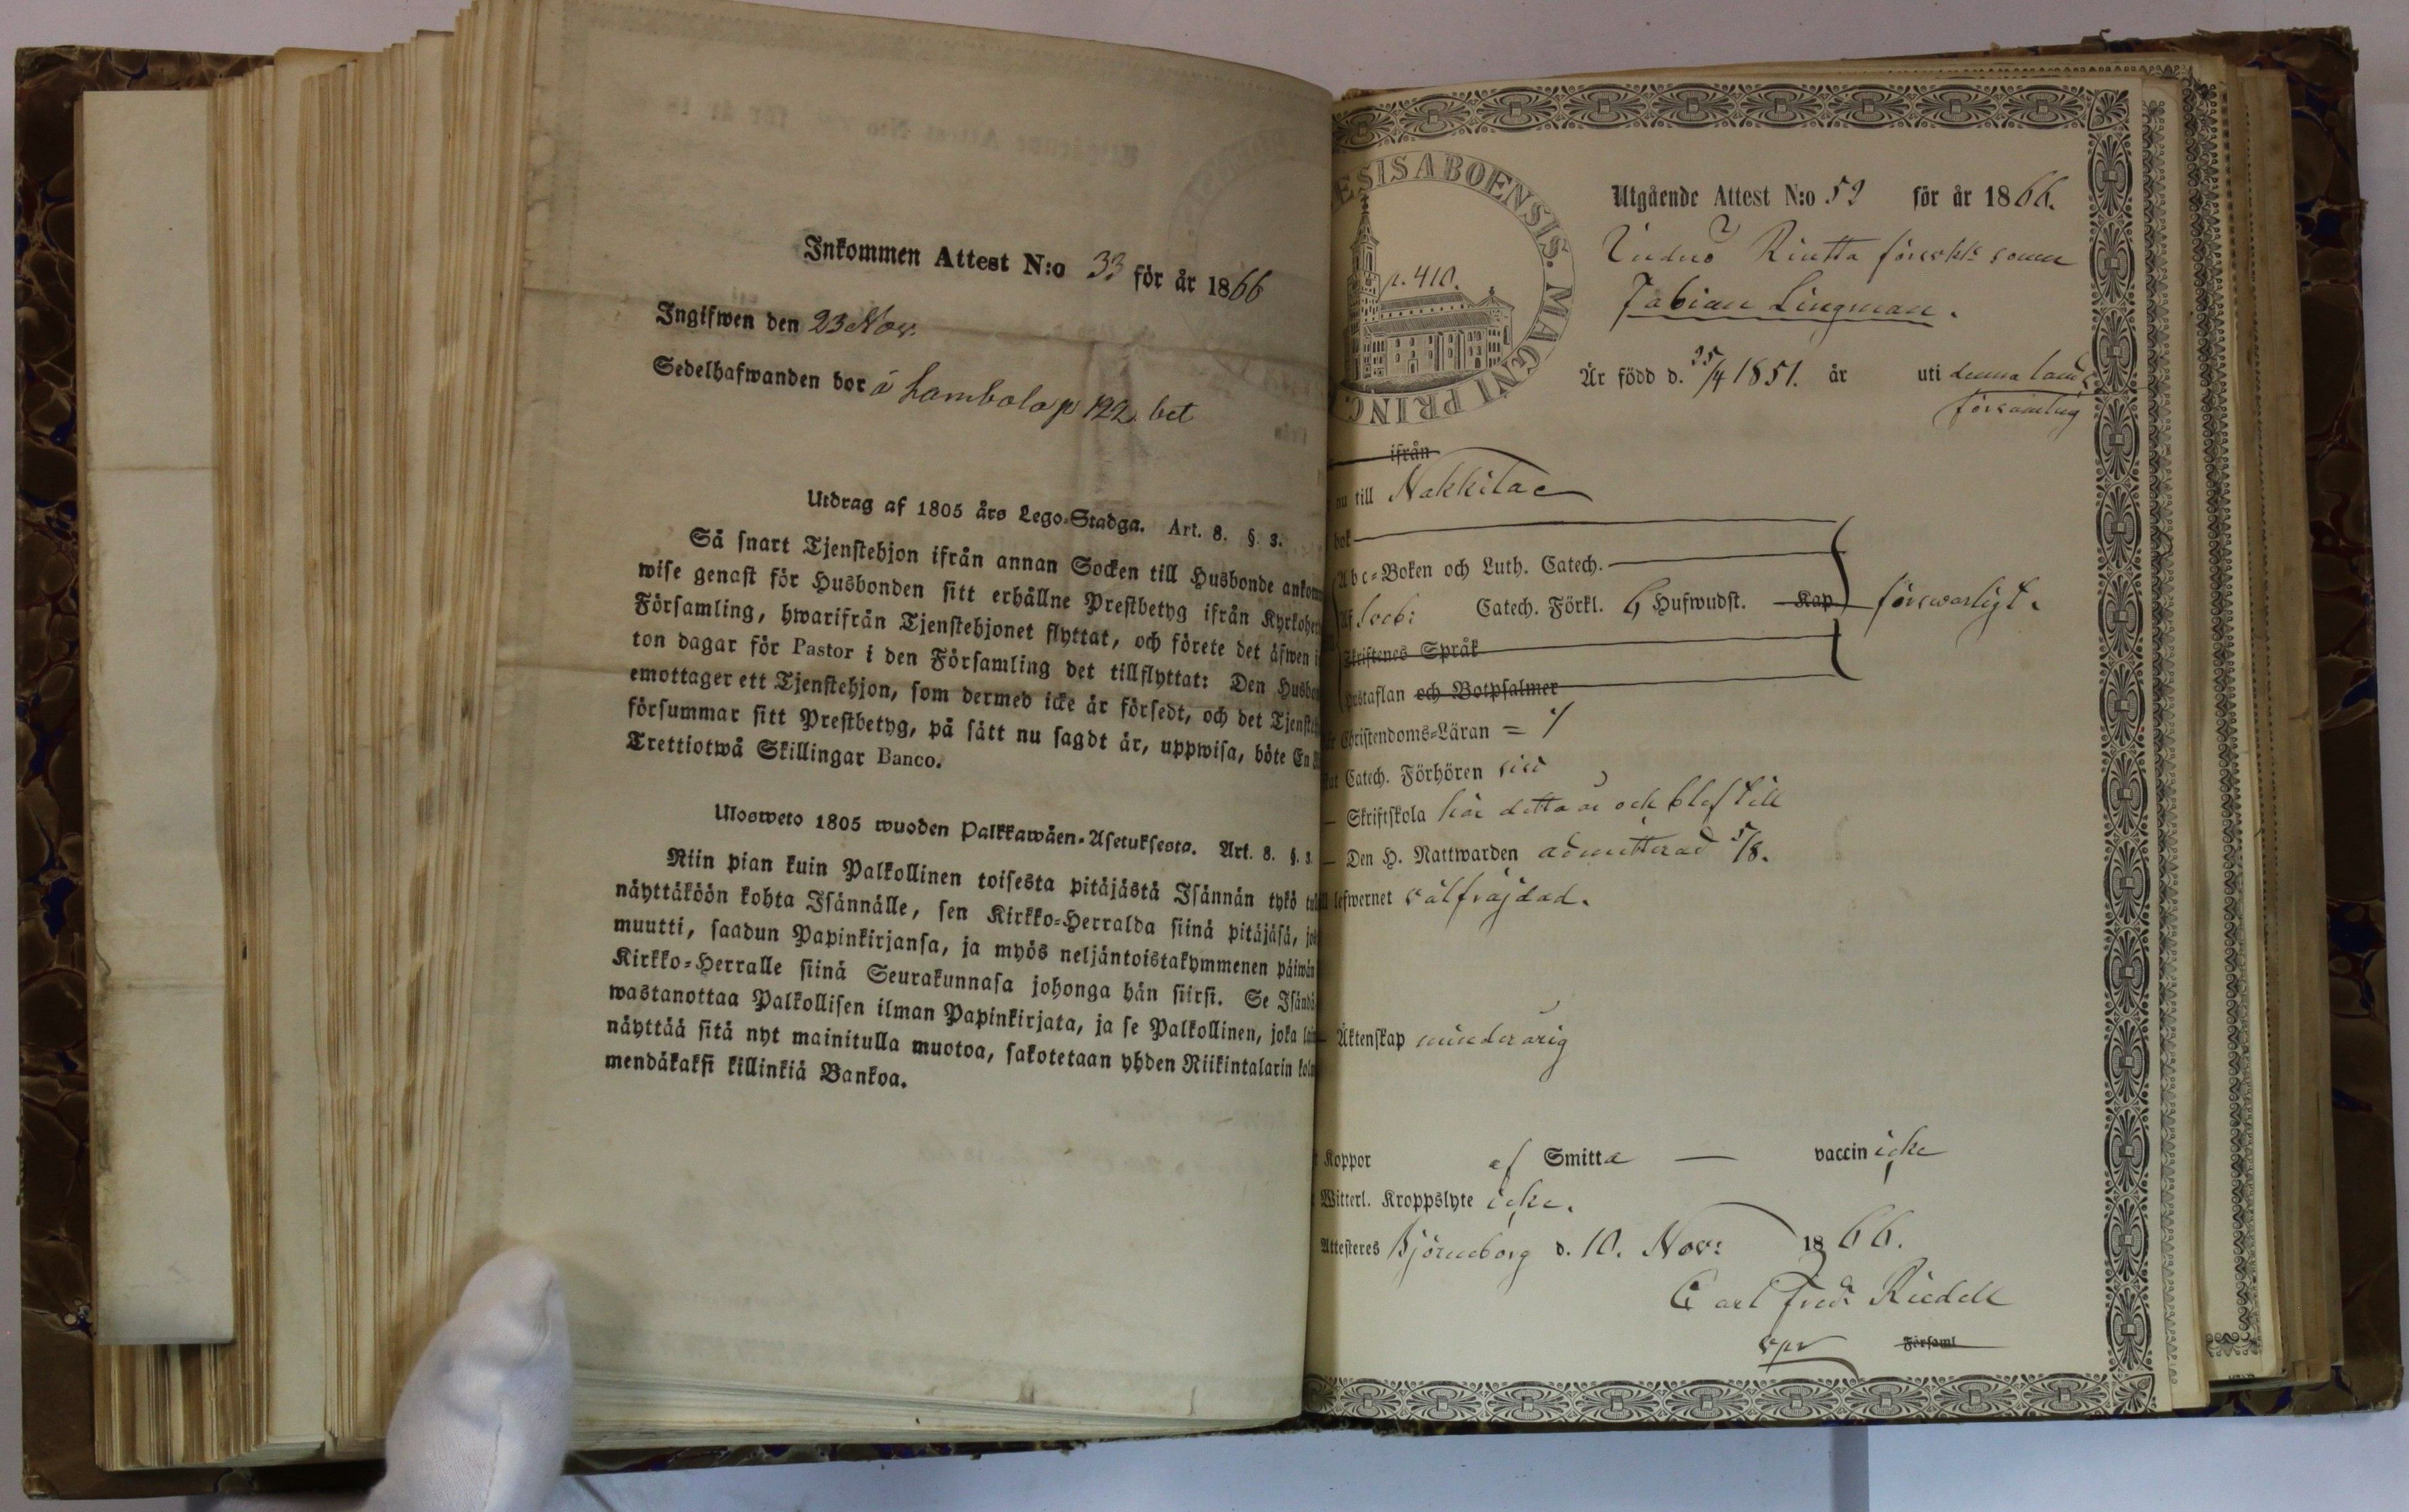 Inkommen Attest N:o 33 för år 1866
Ingifwen den 23 Nov.
Sedelhafwanden bor å Lambola p 122. bet
Utdrag af 1805 års Lego-Stadga. Art. 8. §. 3.
Så snart Tjenstehjon ifrån annan Socken till Husbonde ankom
wise genast för Husbonden sitt erhållne Prestbetyg ifrån Kyrkoher
Församling, hwarifrån Tjenstehjonet flyttat, och förete det äfwen i
ton dagar för Pastor i den Församling det tillflyttat: Den Husbon
emottager ett Tjenstehjon, som dermed icke är försedt, och det Tjenste
försummar sitt Prestbetyg, på sätt nu sagdt är, uppwisa, böte En
Trettiotwå Skillingar Banco.
Ulosweto 1805 wuoden Palkkawäen-Asetuksesta. Art. 8. §. 3.
Niin pian kuin Palkollinen toisesta pitäjästä Isännän tykö tul
näyttäköön kohta Isännälle, sen Kirkko-Herralda siinä pitäjäsä, jo
muutti, saadun Papinkirjansa, ja myös neljäntoistakymmenen päiwän
Kirkko-Herralle siinä Seurakunnasa johonga hän siirsi. Se Isändä
wastanottaa Palkollisen ilman Papinkirjata, ja se Palkollinen, joka lai
näyttää sitä nyt mainitulla muotoa, sakotetaan yhden Riikintalarin kolm
mendäkaksi killinkiä Bankoa.
ESIS ABOENSIS. MAGNI PRINC
p. 410.
Utgående Attest N:o 52 för år 1866.
Rintta sonen
Fabian Lingman.
Är född d. 25/4 1851. år uti denna lands
församling
ifrån
nu till Nakkila
bok
Abc-Boken och Luth. Catech.
Catech. Förkl. 6 Hufwudst. Kap. förswarligt.
Skriftenes Språk
Hustaflan och Botpsalmer
Christendoms-Läran = /
Catech. Förhören
Skriftskola här detta år och blef till
Den H. Nattwarden admitterad 5/8.
lefwernet välfräjdad.
Äktenskap minderårig
Koppor af Smitta — vaccin icke
Witterl. Kroppslyte icke.
Attesteres Björneborg d. 10. Nov: 1866.
Carl Fredr Riedell
vpr Församl